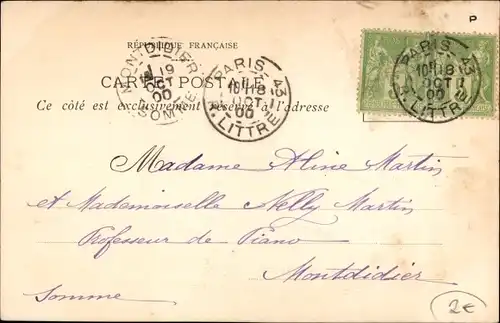 P
RÉPUBLIQUE FRANÇAISE
CARTE POSTALE
Ce côté est exclusivement réservé à l'adresse
MONTDIDIER
19
00
SOMME
PARIS 43
R. LITTRÉ
00
PARIS 43
R. LITTRÉ
Madame Aline Martin
et Mademoiselle Nelly Martin
Professeur de Piano
Montdidier
Somme
2€